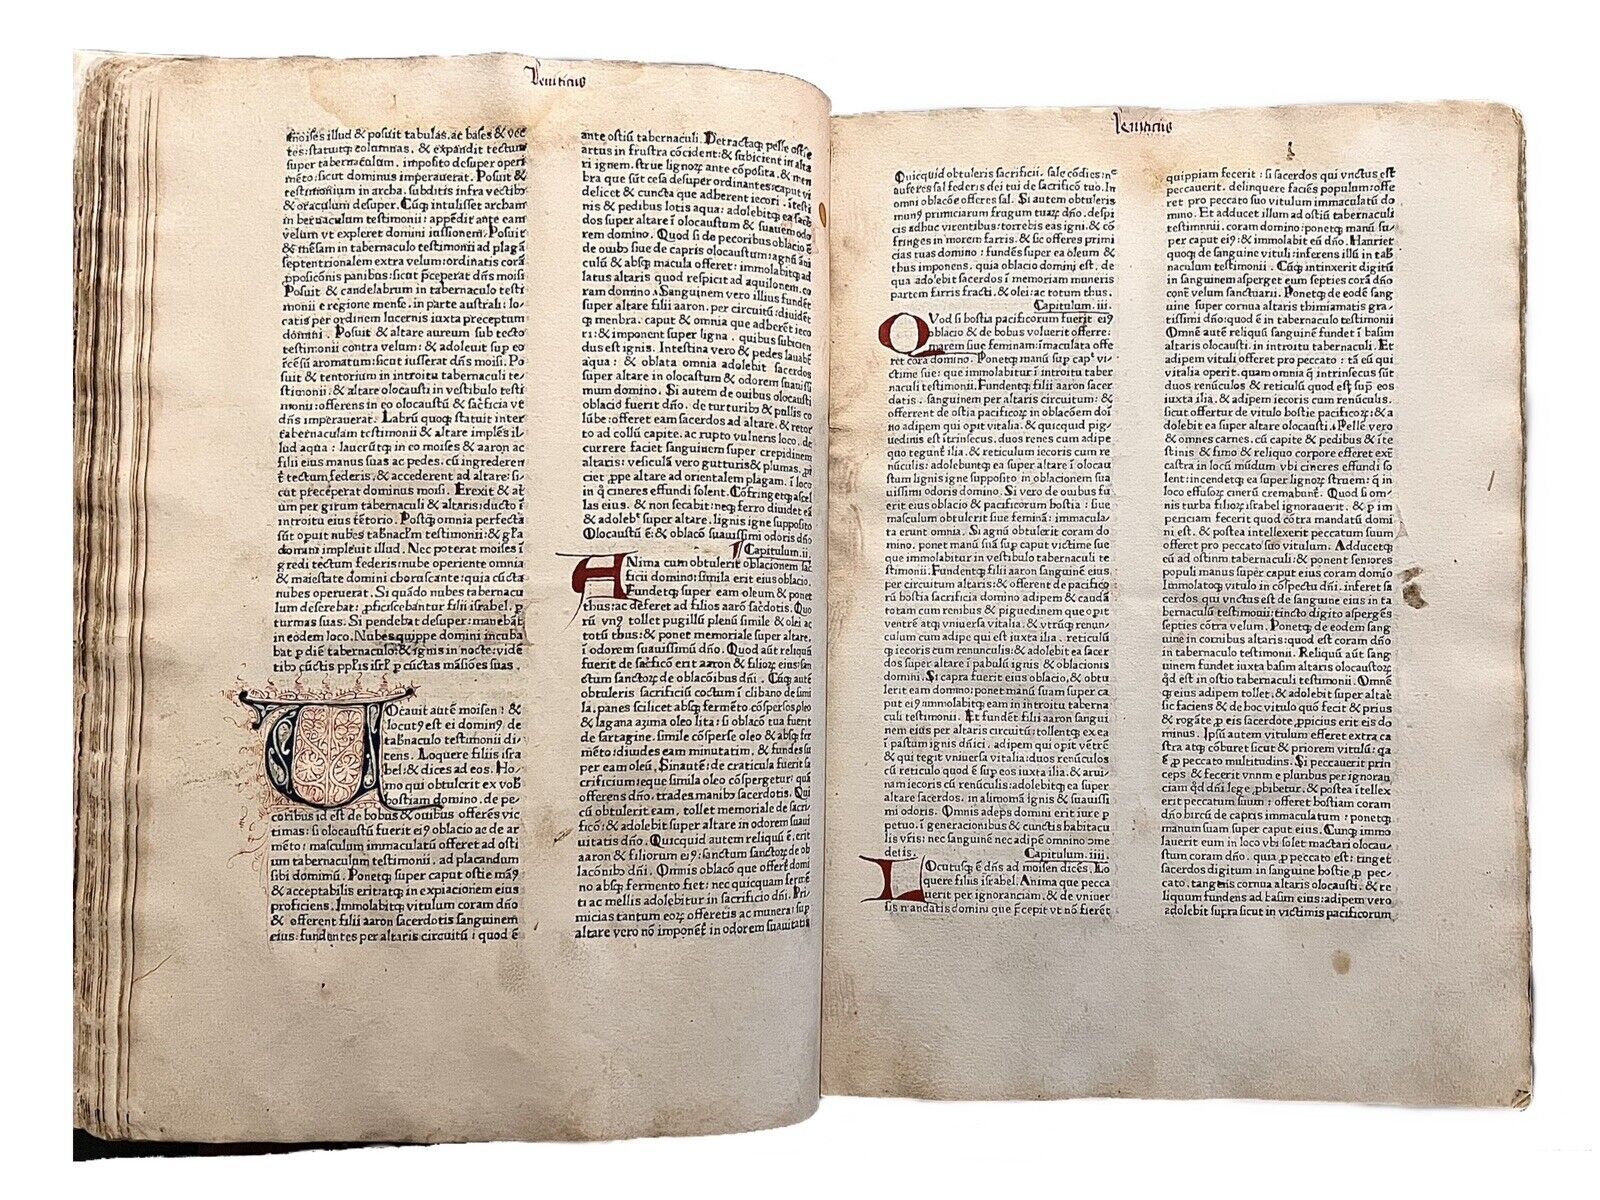 Leuiticus
moises illud & posuit tabulas. ac bases & vec
tes: statuitq; columnas. & expandit tectum
super tabernaculum. imposito desuper operi
mēto: sicut dominus imperauerat. Posuit &
testimonium in archa. subditis infra vectibꝯ
& oraculum desuper. Cūq; intulisset archam
in bernaculum testimonii: appēdit ante eam
velum vt expleret domini iussionem. Posuit
& mēsam in tabernaculo testimonii ad plagā
septentrionalem extra velum: ordinatis corā
ꝓposicōnis panibus: sicut p̄ceperat dn̄s moisi
Posuit & candelabrum in tabernaculo testi
monii e regione mense. in parte australi: lo⸗
catis per ordinem lucernis iuxta preceptum
domini. Posuit & altare aureum sub tecto
testimonii contra velum: & adoleuit sup eo
incēsū aromatum: sicut iusserat dn̄s moisi. Po
suit & tentorium in introitu tabernaculi te⸗
stimonii: & altare olocausti in vestibulo testi
monii: offerens in eo olocaustū & sac̄ficia vt
dn̄s imperauerat. Labrū quoq; statuit inter
tabernaculum testimonii & altare implēs il⸗
lud aqua: lauerūtq; in eo moises & aaron ac
filii eius manus suas ac pedes. cū ingrederen
t̄ tectum federis. & accederent ad altare: si⸗
cut preceperat dominus moisi. Erexit & atri
um per girum tabernaculi & altaris: ducto ī
introitu eius tētorio. Postq; omnia perfectā
sūt opuit nubes tabnac̄lm testimonii: & glā
domini impleuit illud. Nec poterat moises ī
gredi tectum federis: nube operiente omnia
& maiestate domini choruscante: quia cūcta
nubes operuerat. Si quādo nubes tabernacu
lum deserebat: ꝓficiscebantur filii israhel. ꝑ
turmas suas. Si pendebat desuper: manebāt
in eodem loco. Nubes quippe domini incuba
bat ꝑ diē tabernaculo: & ignis in nocte: vidē
tibꝯ cūctis pp̄lis isrl̄ ꝑ cūctas māsiōes suas.
VOcauit autē moisen: &
locutꝯ est ei dominꝯ de
tabnaculo testimonii di
cens. Loquere filiis isra
hel: & dices ad eos. Ho⸗
mo qui obtulerit ex vobꝯ
hostiam domino. de pe⸗
coribus id est de bobus & ouibus offerēs vic
timas: si olocaustū fuerit eiꝯ oblacio ac de ar
mēto: masculum immaculatū offeret ad osti
um tabernaculum testimonii. ad placandum
sibi dominū. Ponetq; super caput ostie manꝯ
& acceptabilis erit: atq; in expiacionem eius
proficiens. Immolabitq; vitulum coram dn̄o
& offerent filii aaron sacerdotis sanguinem
eius: fundentes per altaris circuitū: quod ē
ante ostiū tabernaculi. Detractaq; pelle ostie
artus in frustra cōcident: & subicient in alta
ri ignem. strue lignoꝝ ante cōposita. & mem
bra que sūt cesa desuper ordinantes: caput vi
delicet & cuncta que adherent iecori. itesti
nis & pedibus lotis aqua: adolebitq; ea sacer
dos super altare ī olocaustum & suauem odo
rem domino. Quod si de pecoribus oblacio ē
de ouibꝯ siue de capris olocaustum: agnū āni
culū & absq; macula offeret: immolabitq; ad
latus altaris quod respicit ad aquilonem. co
ram domino. Sanguinem vero illius fundēt
super altare filii aaron. per circuitū: diuidēt
q; menbra. caput & omnia que adherēt ieco
ri: & imponent super ligna. quibus subicien
dus est ignis. Intestina vero & pedes lauabūt
aqua: & oblata omnia adolebit sacerdos
super altare in olocaustum & odorem suauissi
mum domino. Si autem de ouibus olocausti
oblacio fuerit dn̄o. de turturibꝯ & pullis co
lūbe: offeret eam sacerdos ad altare. & retor
to ad collū capite. ac rupto vulneris loco. de
currere faciet sanguinem super crepidinem
altaris: vesiculā vero gutturis & plumas. pī
ciet ꝓpe altare ad orientalem plagam. ī loco
in q̄ cineres effundi solent. Cōfringetq; ascel
las eius. & non secabit: neq; ferro diuidet eā
& adolebꝯ super altare. lignis igne supposito
Olocaustū ē: & oblacō suauissimi odoris dn̄o
Capitulum.ii.
ANima cum obtulerit oblacionem sac̄
ficii domino: simila erit eius oblacio.
Fundetq; super eam oleum & ponet
thus: ac deferet ad filios aarō sac̄dotis. Quo
rū vnꝯ tollet pugillū plenū simile & olei ac
totū thus: & ponet memoriale super altare.
ī odorem suauissimū dn̄o. Quod aut̄ reliquū
fuerit de sac̄ficō erit aaron & filioꝝ eius: san
ctum sanctoꝝ de oblacōibus dn̄i. Cūq; autē
obtuleris sacrificiū coctum ī clibano de simi
la. panes scilicet absq; fermēto cōspersos oleo
& lagana azima oleo lita: si oblacō tua fuerit
de sartagine. simile cōsperse oleo & absq; fer
mēto: diuides eam minutatim. & fundes su
per eam oleū. Sinautē: de craticula fuerit sa
crificium: eque simila oleo cōspergetur: quā
offerens dn̄o. trades manibꝯ sacerdotis. Qui
cum obtulerit eā. tollet memoriale de sacri
ficō: & adolebit super altare in odorem suaui
uitatis dn̄o. Quicquid autem reliquū ē. erit
aaron & filiorum eiꝯ: sanctum sanctoꝝ de ob
lacōnibꝯ dn̄i. Omnis oblacō que offert̄ domi
no absq; fermento fiet: nec quicquam fermē
ti ac mellis adolebitur in sacrificio dn̄i. Pri⸗
micias tantum eoꝝ offeretis ac munera: sup
altare vero nō imponet̄ in odorem suauitatis
Leuiticus
Quicquid obtuleris sacrificii. sale cōdies: ne
auferes sal federis dei tui de sacrificō tuo. In
omni oblacōe offeres sal. Si autem obtuleris
munꝯ primiciarum frugum tuaꝝ dn̄o. despi
cis adhuc virentibus: torrebis eas igni. & cō
fringes in morem farris. & sic offeres primi
cias tuas domino: fundēs super ea oleum &
thus imponens. quia oblacio domini est. de
qua adolebit sacerdos ī memoriam muneris
partem farris fracti. & olei: ac totum thus.
Capitulum. iii.
QVod si hostia pacificorum fuerit eiꝯ
oblacio & de bobus voluerit offerre:
marem siue feminam: īmaculata offe
ret corā domino. Ponetq; manū sup capꝯ vi⸗
ctime sue: que immolabitur ī introitu taber
naculi testimonii. Fundentq; filii aaron sacer
dotis. sanguinem per altaris circuitum: &
offerrent de ostia pacificoꝝ in oblacōem doī
no adipem qui opit vitalia: & quicquid pig⸗
uedinis est itrinsecus. duos renes cum adipe
quo tegunt̄ ilia. & reticulum iecoris cum re
nūculis: adolebuntq; ea super altare ī olocau
stum lignis igne supposito in oblacionem sua
uissimi odoris domino. Si vero de ouibus fu
erit eius oblacio & pacificorum hostia: siue
masculum obtulerit siue feminā: immacula⸗
ta erunt omnia. Si agnū obtulerit coram do
mino. ponet manū suā sup caput victime sue
que immolabitur in vestibulo tabernaculi te
stimonii. Fundentq; filii aaron sanguinē eius.
per circuitum altaris: & offerent de pacifico
rū hostia sacrificia domino adipem & caudā
totam cum renibus & piguedinem que opit
ventrē atq; vniuersa vitalia. & vtrūq; renun⸗
culum cum adipe qui est iuxta ilia. reticulū
iecoris cum renunculis: & adolebit ea sacer
dos super altare ī pabulū ignis & oblacionis
domini. Si capra fuerit eius oblacio. & obtu
lerit eam domino: ponet manū suam super ca
put eiꝯ immolabitq; eam in introitu taberna
culi testimonii. Et fundēt filii aaron sangui
nem eius per altaris circuitū: tollentq; ex ea
ī pastum ignis dn̄ici. adipem qui opit vētrē
& qui tegit vniuersa vitalia: duos renūculos
cū reticulo quod ē suꝑ eos iuxta ilia. & arui⸗
nam iecoris cū renūculis: adolebitq; ea super
altare sacerdos. in alimomā ignis & suauissi
mi odoris. Omnis adeps domini erit iure ꝑ
petuo. ī generacionibus & cunctis habitacu
lis vr̄is: nec sanguinē nec adipem omnino ɔme
detis.
Capitulum.iiii.
LOcutusq; ē dn̄s ad moisen dicēs. Lo
quere filiis israhel. Anima que pecca
uerit per ignoranciam. & de vniuer
sis mandatis domini que p̄cepit vt nō fierēt
quippiam fecerit: si sacerdos qui vnctus est
peccauerit. delinquere faciēs populum: offe
ret pro peccato suo vitulum immaculatū do
mino. Et adducet illum ad ostiū tabernaculi
testimnnii. coram domino: ponetq; manū su⸗
per caput eiꝯ: & immolabit eū dn̄o. Hauriet
quoq; de sanguine vituli: inferens illū in tab
naculum testimonii. Cūq; intinxerit digitū
in sanguinem asperget eum septies corā dn̄o
cont̄ velum sanctuarii. Ponetq; de eodē sang
uine super cornua altaris thimiamatis gra⸗
tissimi dn̄o: quod ē in tabernaculo testimonii
Omnē autē reliquū sanguinē fundet ī basim
altaris olocausti. in introitu tabernaculi. Et
adipem vituli offeret pro peccato: tā eū qui
vitalia operit. quam omnia q̄ intrinsecus sūt
duos renūculos & reticulū quod est suꝑ eos
iuxta ilia. & adipem iecoris cum renūculis.
sicut offertur de vitulo hostie pacificoꝝ: & a
dolebit ea super altare olocausti. Pellē vero
& omnes carnes. cū capite & pedibus & īte
stinis & fimo & reliquo corpore efferet ext̄
castra in locū mūdum vbi cineres effundi so
lent: incendetq; ea super lignoꝝ struem: q̄ ī
loco effusoꝝ cinerū cremabunt̄. Quod si om
nis turba filioꝝ israhel ignorauerit. & ꝑ im
periciam fecerit quod cōtra mandatū domi
ni est. & postea intellexerit peccatum suum
offeret pro peccato suo vitulum. Adducetq;
eū ad ostiū tabernaculi: & ponent seniores
populi manus super caput eius coram domio
Immolatoq; vitulo in cōspectu dn̄i: inferet sa
cerdos qui vnctus est de sanguine eius in ta
bernaculū testimonii: tincto digito aspergēs
septies cōtra velum. Ponetq; de eodem sang
uine in cornibus altaris: quod est coram dn̄o
& est in tabernaculo testimonii. Reliquū aut̄
sanguinem fundet iuxta basim altaris olocaustoꝝ:
qd̄ est in ostio tabernaculi testimonii. Omnē
q; eius adipem tollet. & adolebit sup altare:
sic faciens & de hoc vitulo quo fecit & prius
& rogāte ꝓ eis sacerdote. ꝓpicius erit eis do
minus. Ipsū autem vitulum efferet extra ca
stra atq; cōburet sicut & priorem vitulū: qa
ē ꝓ peccato multitudinis. Si peccauerit prin
ceps & fecerit vnnm e pluribus per ignorau
ciam qd̄ dn̄i lege ꝓhibetur. & postea ītellex
erit peccatum suum: offeret hostiam coram
dn̄o hircū de capris immaculatum: ponetq;
manum suam super caput eius. Cunq; immo
lauerit eum in loco vbi solet mactari olocau⸗
stum coram dn̄o. quia ꝓ peccato est: tinget
sacerdos digitum in sanguine hostie ꝓ pec
cato. tangens cornua altaris olocausti. & re
liquum fundens ad basim eius: adipem vero
adolebit supra sicut in victimis pacificorum